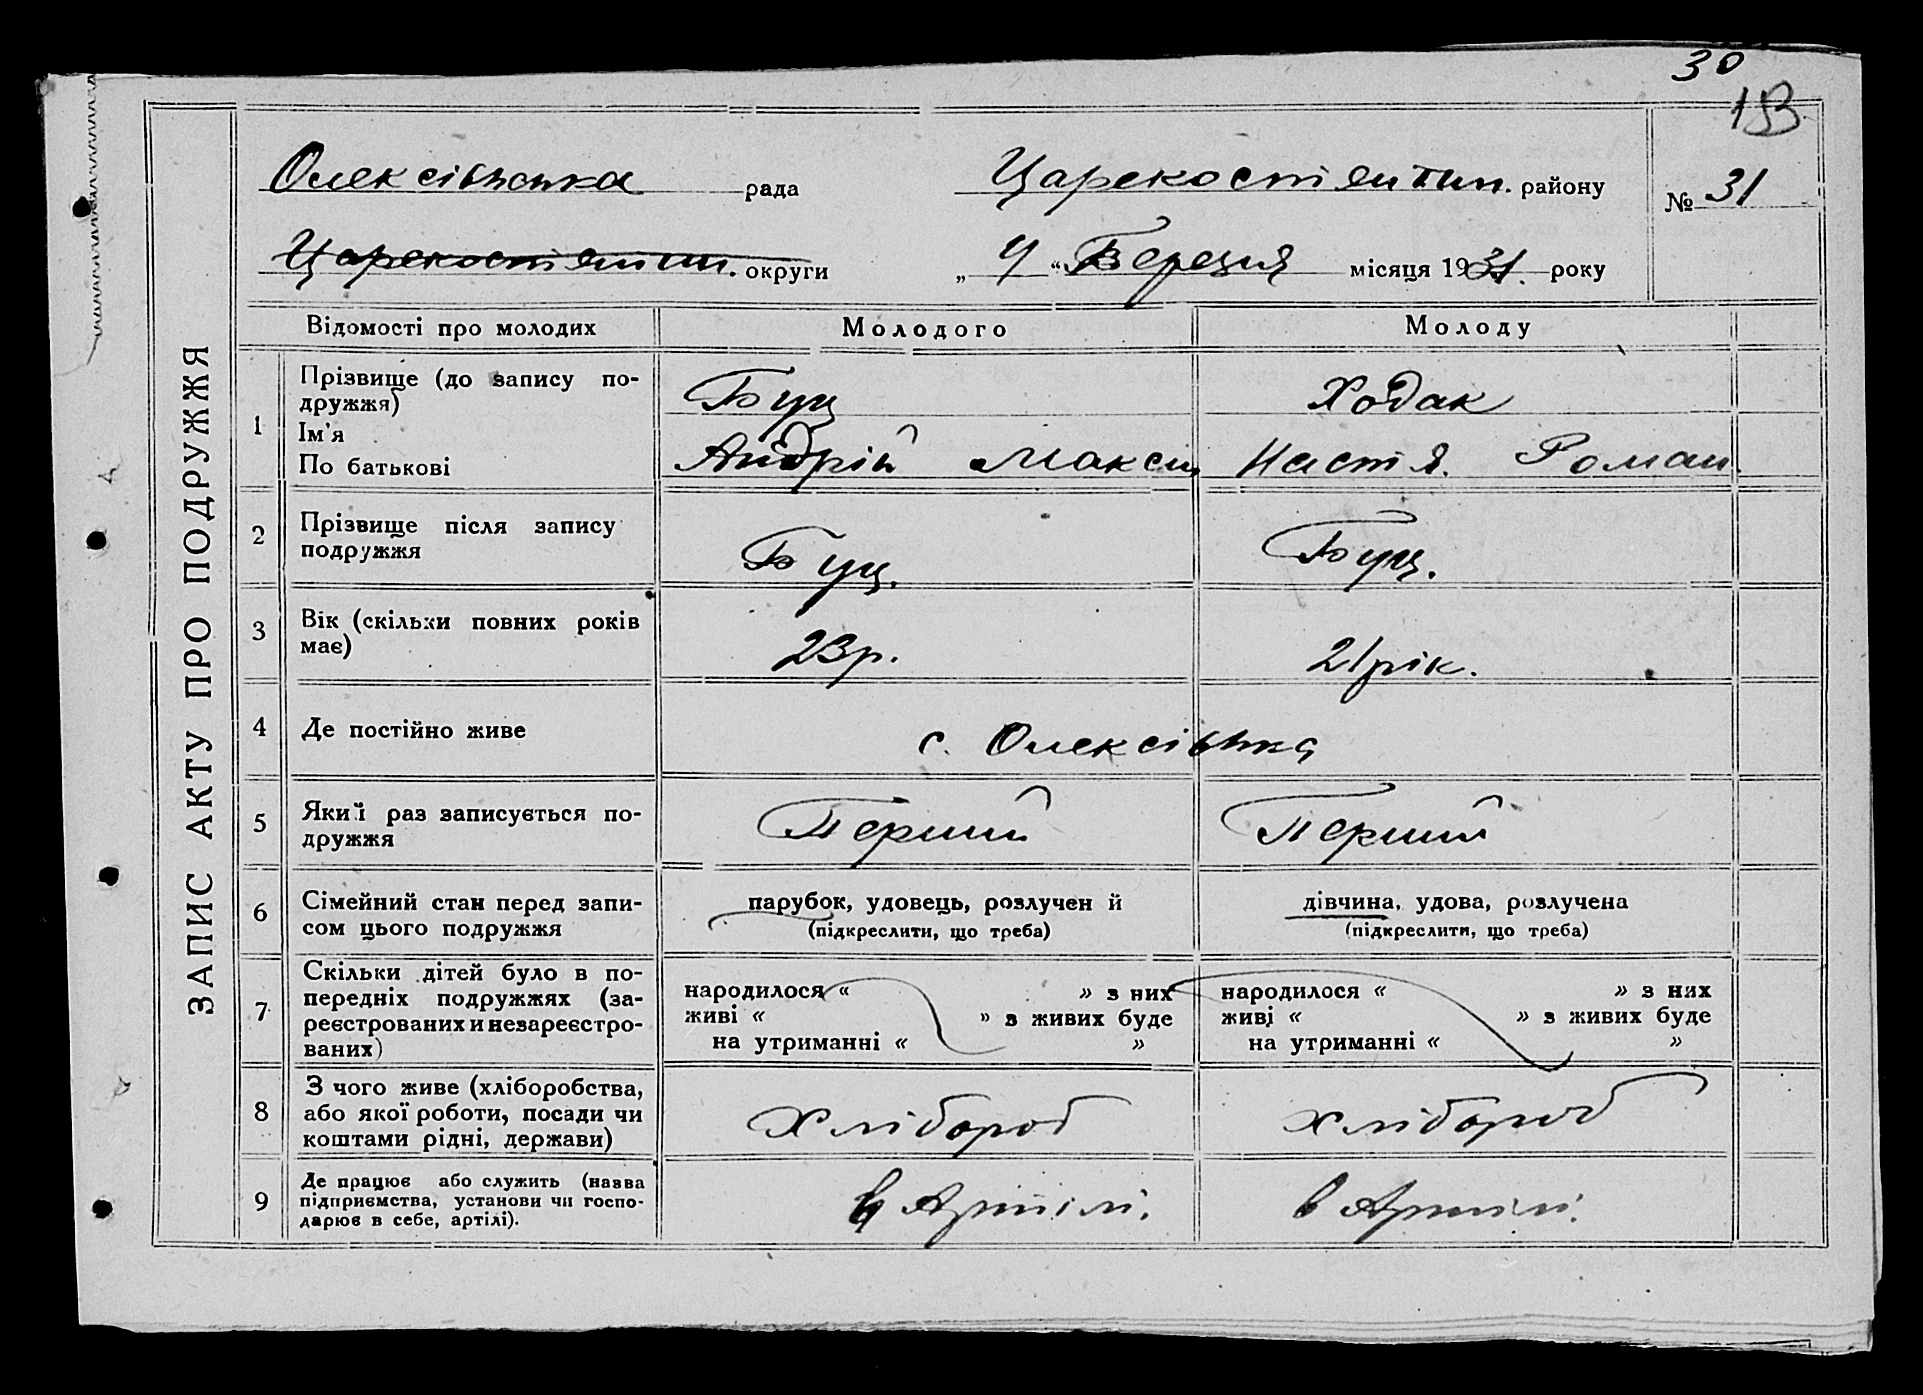 30
133
Олексівська рада Царекостянтин. району № 31
Царекостянтин. округи „ 4 “ Березня місяця 1931. року
ЗАПИС АКТУ ПРО ПОДРУЖЖЯ
Відомості про молодих Молодого Молоду
1 Прізвище (до запису по-
дружжя) Буц Ходак
Ім'я
По батькові Андрій Максим Настя. Роман.
2 Прізвище після запису
подружжя Буц. Буц.
3 Вік (скільки повних років
має) 23р. 21рік.
4 Де постійно живе с. Олексівка
5 Який раз записується по-
дружжя Перший Перший
6 Сімейний стан перед запи-
сом цього подружжя
парубок, удовець, розлучений
(підкреслити, що треба)
дівчина, удова, розлучена
(підкреслити, що треба)
7 Скільки дітей було в по-
передніх подружжях (за-
реєстрованих и незареєстро-
ваних)
народилося « » з них
живі « » з живих буде
на утриманні « »
народилося « » з них
живі « » з живих буде
на утриманні « »
8 З чого живе (хліборобства,
або якої роботи, посади чи
коштами рідні, держави)
Хлібороб хлібороб
9 Де працює або служить (назва
підприємства, установи чи госпо-
дарює в себе, артілі).
в Артілі. в Артілі.